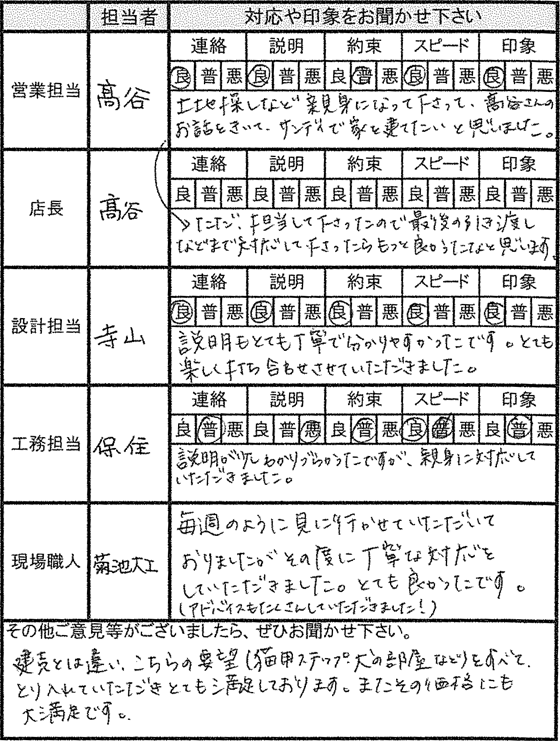 担当者 対応や印象をお聞かせ下さい
営業担当 髙谷
連絡 説明 約束 スピード 印象
良 普 悪 良 普 悪 良 普 悪 良 普 悪 良 普 悪
土地探しなど親身になって下さって、髙谷さんの
お話をきいて、サンディで家を建てたいと思いました。
店長 髙谷
連絡 説明 約束 スピード 印象
良 普 悪 良 普 悪 良 普 悪 良 普 悪 良 普 悪
ただ、担当して下さったので最後の引き渡し
などまで対応して下さったらもっと良かったなと思います。
設計担当 寺山
連絡 説明 約束 スピード 印象
良 普 悪 良 普 悪 良 普 悪 良 普 悪 良 普 悪
説明もとても丁寧で分かりやすかったです。とても
楽しく打ち合わせさせていただきました。
工務担当 保住
連絡 説明 約束 スピード 印象
良 普 悪 良 普 悪 良 普 悪 良 普 悪 良 普 悪
説明が少しわかりづらかったですが、親身に対応して
いただきました。
現場職人 菊池大工
毎週のように見に行かせていただいて
おりましたがその度に丁寧な対応を
していただきました。とても良かったです。
(アドバイスもたくさんしていただきました!)
その他ご意見等がございましたら、ぜひお聞かせ下さい。
建売とは違い、こちらの要望(猫用ステップ・犬の部屋など)をすべて
とり入れていただきとても満足しております。またその価格にも
大満足です。